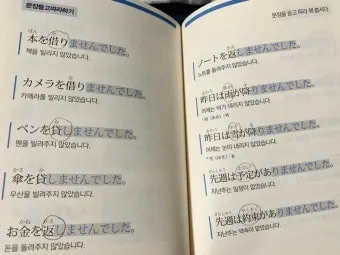 문장듣고따라하기
ほん か
本を借りませんでした。
책을 빌리지 않았습니다.
か
カメラを借りませんでした。
카메라를 빌리지 않았습니다.
か
ペンを貸しませんでした。
펜을 빌려주지 않았습니다.
かさ か
傘を貸しませんでした。
우산을 빌려주지 않았습니다.
かね かえ
お金を返しませんでした。
돈을 돌려주지 않았습니다.
문장을 듣고 따라 해 봅시다.
かえ
ノートを返しませんでした。
노트를 돌려주지 않았습니다.
きのう あめ ふ
昨日は雨が降りませんでした。
어제는 비가 내리지 않았습니다.
きのう ゆき ふ
昨日は雪が降りませんでした。
어제는 눈이 내리지 않았습니다.
せんしゅう よてい
先週は予定がありませんでした。
지난주는 일정이 없었습니다.
せんしゅう やくそく
先週は約束がありませんでした。
지난주는 약속이 없었습니다.